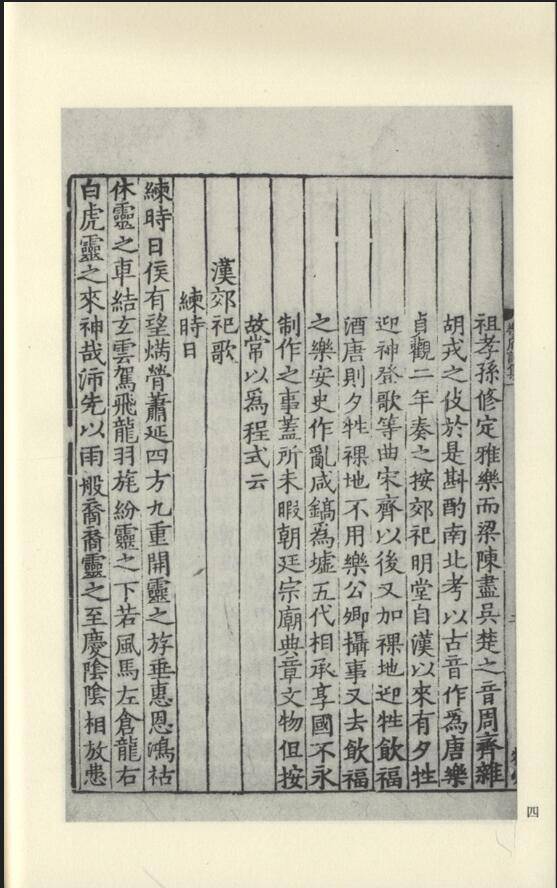 祖孝孫修定雅樂而梁陳盡吳楚之音周齊雜
胡戎之伎於是斟酌南北考以古音作爲唐樂
貞觀二年奏之按郊祀明堂自漢以來有夕牲
迎神登歌等曲宋齊以後又加祼地迎牲飲福
酒唐則夕牲祼地不用樂公卿攝事又去飲福
之樂安史作亂咸鎬爲墟五代相承享國不永
制作之事蓋所未暇朝廷宗廟典章文物但按
故常以爲程式云
漢郊祀歌
練時日
練時日侯有望焫膋蕭延四方九重開靈之斿垂惠恩鴻祜
休靈之車結玄雲駕飛龍羽旄紛靈之下若風馬左倉龍右
白虎靈之來神哉沛先以雨般裔裔靈之至慶陰陰相放𢙣
四